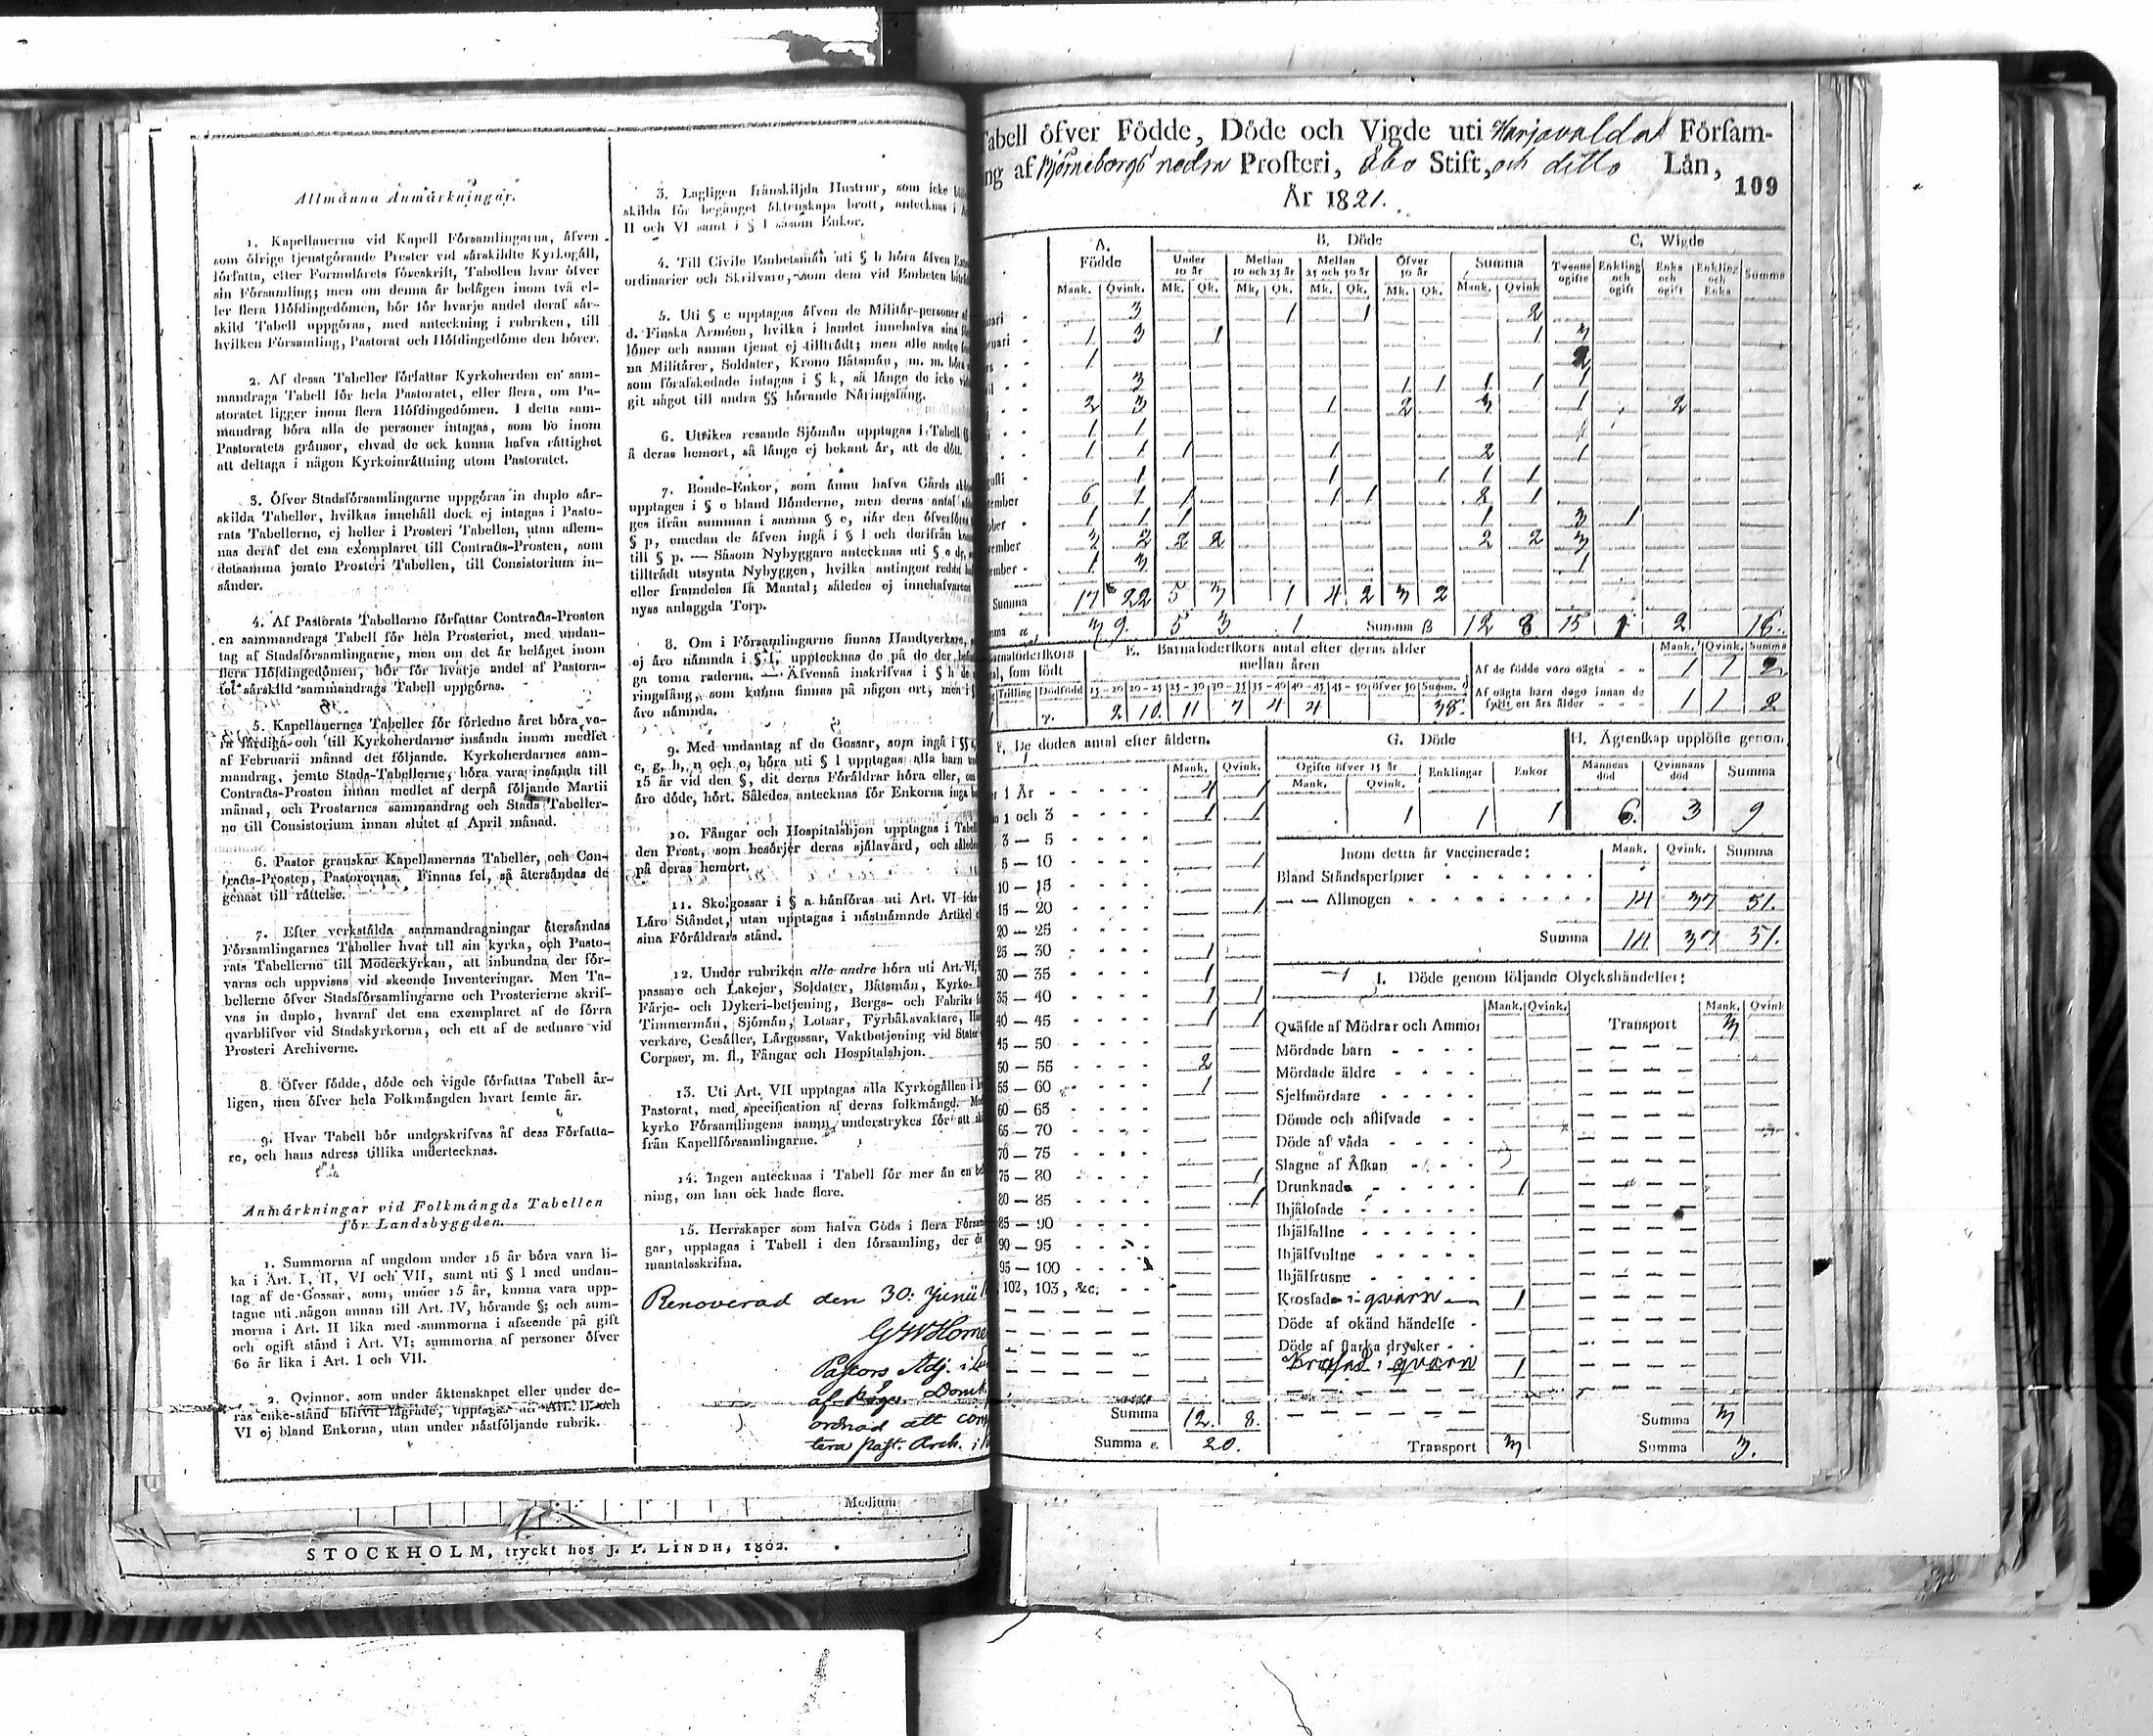 Allmänna Anmärkningar.
1. Kapellanerne vid Kapell Församlingarna, äfven
som öfrige tjenstgörande Prester vid särskildte Kyrkogäll,
författa, efter Formulärets föreskrift, Tabellen hvar öfver
sin Församling; men om denna är belägen inom två el-
ler flera Höfdingedömen, bör för hvarje andel deraf sär-
skild Tabell uppgöras, med anteckning i rubriken, till
hvilken Församling, Pastorat och Höfdingedöme den hörer.
2. Af dessa Tabeller författar Kyrkoherden en sam-
mandrags Tabell för hela Pastoratet, eller flera, om Pa-
storatet ligger inom flera Höfdingedömen. I detta sam-
mandrag böra alla de personer intagas, som bo inom
Pastoratets gränsor, ehvad de ock kunna hafva rättighet
att deltaga i någon Kyrkoinrättning utom Pastoratet.
3. Öfver Stadsförsamlingarne uppgöras in duplo sär-
skilda Tabeller, hvilkas innehåll dock ej intagas i Pasto-
rats Tabellerne, ej heller i Prosteri Tabellen, utan aflem-
nas deraf det ena exemplaret till Contracts-Prosten, som
detsamma jemte Prosteri Tabellen, till Consistorium in-
sänder.
4. Af Pastorats Tabellerne författar Contracts-Prosten
en sammandrags Tabell för hela Prosteriet, med undan-
tag af Stadsförsamlingarne, men om det är beläget inom
flera Höfdingedömen, bör för hvarje andel af Pastora-
tet särskild sammandrags Tabell uppgöras.
5. Kapellanernes Tabeller för förledne året böra va-
ra färdiga och till Kyrkoherdarne insända innan medlet
af Februarii månad det följande. Kyrkoherdarnes sam-
mandrag, jemte Stads-Tabellerne, böra vara insända till
Contracts-Prosten innan medlet af derpå följande Martii
månad, och Prostarnes sammandrag och Stads Tabeller-
ne till Consistorium innan slutet af April månad.
6. Pastor granskar Kapellanernas Tabeller, och Con-
tracts-Prosten, Pastorernas. Finnas fel, så återsändas de
genast till rättelse.
7. Efter verkställda sammandragningar återsändas
Församlingarnes Tabeller hvar till sin kyrka, och Pasto-
rats Tabellerne till Moderkyrkan, att inbundna der för-
varas och uppvisas vid skeende Inventeringar. Men Ta-
bellerne öfver Stadsförsamlingarne och Prosterierne skrif-
vas in duplo, hvaraf det ena exemplaret af de förra
qvarblifver vid Stadskyrkorna, och ett af de sednare vid
Prosteri Archiverne.
8. Öfver födde, döde och vigde författas Tabell år-
ligen, men öfver hela Folkmängden hvart femte år.
9. Hvar Tabell bör underskrifvas af dess Författa-
re, och hans adress tillika undertecknas.
Anmärkningar vid Folkmängds Tabellen
för Landsbyggden.
1. Summorna af ungdom under 15 år böra vara li-
ka i Art. I, II, VI och VII, samt uti § l med undan-
tag af de Gossar, som, under 15 år, kunna vara upp-
tagne uti någon annan till Art. IV, hörande §; och sum-
morna i Art. II lika med summorna i afseende på gift
och ogift stånd i Art. VI; summorna af personer öfver
60 år lika i Art. I och VII.
2. Qvinnor, som under äktenskapet eller under de-
ras enke-stånd blifvit lägrade, upptagas uti Art. II och
VI ej bland Enkorna, utan under nästföljande rubrik.
3. Lagligen frånskiljda Hustrur, som icke
skilda för begånget äktenskaps brott, antecknas i
II och VI samt i § l såsom Enkor.
4. Till Civile Embetsmän uti § b höra äfven
ordinarier och Skrifvare, som dem vid Embeten
5. Uti § c upptagas äfven de Militär-personer af
d. Finska Arméen, hvilka i landet innehafva sina
löner och annan tjenst ej tillträdt; men alle andre
na Militärer, Soldater, Krono Båtsmän, m. m. böra,
som förafskedade intagas i § k, så länge de icke
git något till andra §§ hörande Näringsfång.
6. Utrikes resande Sjömän upptagas i Tabell
å deras hemort, så länge ej bekant är, att de dött.
7. Bonde-Enkor, som ännu hafva Gårds
upptages i § o bland Bönderne, men deras antal
ges ifrån summan i samma § o, når den öfverföres
§ p, emedan de äfven ingå i § l och derifrån
till § p. — Såsom Nybyggare antecknas uti § o de,
tillträdt utsynta Nybyggen, hvilka antingen redan
eller framdeles få Mantal; således ej innehafvaren
nyss anlaggda Torp.
8. Om i Församlingarne finnas Handtverkare,
ej äro nämnda i § i, upptecknas de på de der
ga toma raderna. — Äfvenså inskrifvas i § h de
ringsfång, som kunna finnas på någon ort, men i §
äro nämnda.
9. Med undantag af de Gossar, som ingå i §§
c, g, h, n och o, böra uti § l upptagas alla barn
15 år vid den §, dit deras Föräldrar höra eller, om
äro döde, hört. Således antecknas för Enkorna inga
10. Fångar och Hospitalshjon upptagas i
den Prest, som besörjer deras själavård, och
på deras hemort.
11. Skolgossar i § a hänföras uti Art. VI icke
Läro Ståndet, utan upptagas i nästnämnde Artikel
sina Föräldrars stånd.
12. Under rubriken alle andre höra uti Art. VI,
passare och Lakejer, Soldater, Båtsmän, Kyrko-
Färje- och Dykeri-betjening, Bergs- och Fabriks
Timmermän, Sjömän, Lotsar, Fyrbåksvaktare,
verkare, Gesäller, Lärgossar, Vaktbetjening vid
Corpser, m. fl., Fångar och Hospitalshjon.
13. Uti Art. VII upptagas alla Kyrkogällen i
Pastorat, med specification af deras folkmängd.
kyrko Församlingens namn understrykes för att
från Kapellförsamlingarne.
14. Ingen antecknas i Tabell för mer än en
ning, om han ock hade flere.
15. Herrskaper som hafva Gods i flera
gar, upptagas i Tabell i den församling, der de
mantalsskrifna.
Renoverad den 30: Junii
Pastors Adj. i
ordnad att
Past. Arch. i
Medium
STOCKHOLM, tryckt hos J. P. LINDH, 1802.
Tabell öfver Födde, Döde och Vigde uti Harjavalda Försam-
ng af Björneborgs nedre Prosteri, Åbo Stift, och ditto Län,
År 1821.
109
A. Födde B. Döde C. Wigde
Under 10 år Mellan 10 och 25 år Mellan 25 och 50 år Öfver 50 år Summa Tvenne ogifte Enkling och ogift Enka och ogift Enkling och Enka Summa
Mank. Qvink. Mk. Qk. Mk. Qk. Mk. Qk. Mk. Qk. Mank. Qvink
uari 3 1 1 2
ruari 1 3 1 1 3
1 2
3 1 1 1 1 1
2 3 1 2 3 1 2
1 1 1
1 1 1 1 2 1
gusti 1 1 1 1 1
tember 6 1 1 1 1 2 1
ober 1 1 1 1 3 1
vember 3 2 2 2 2 2 3
ember 1 3 1
Summa 17 22 5 3 1 4 2 3 2
39. 5 3 1 Summa ß 12 8 15 1 2 18.
E. Barnaföderskors antal efter deras ålder
mellan åren
Trilling Dödfödd 15-20 20-25 25-30 30-35 35-40 40-45 45-50 öfver 50 Summ.
2 10. 11 7 4 4 38.
Mank. Qvink. Summa
Af de födde voro oägta 1 1 2
Af oägta barn dogo innan de
fyllt ett års ålder 1 1 2
F. De dödes antal efter åldern.
Mank. Qvink.
1 År 4 1
1 och 3 1 1
3 — 5
5 — 10 1
10 — 15
15 — 20 1
20 — 25
25 — 30 1
30 — 35 1
35 — 40 1 1
40 — 45 1 1
45 — 50
50 — 55 2
55 — 60 1
60 — 65
65 — 70
70 — 75
75 — 80 1
80 — 85 1
85 — 90
90 — 95
95 — 100
102, 103, &c.
Summa 12. 8.
Summa e. 20.
G. Döde
Ogifte öfver 15 år Enklingar Enkor
Mank. Qvink.
1 1 1
H. Ägtenskap upplöste genom
Mannens död Qvinnans död Summa
6. 3 9
Inom detta år vaccinerade: Mank. Qvink. Summa
Bland Ståndspersoner
— — Allmogen 14 37 51.
Summa 14 37 51.
I. Döde genom följande Olyckshändelser:
Mank. Qvink. Mank. Qvink
Qväfde af Mödrar och Ammor Transport 3
Mördade barn
Mördade äldre
Sjelfmördare
Dömde och aflifvade
Döde af våda
Slagne af Åskan
Drunknade 1
Ihjälosade
Ihjälfallne
Ihjälsvultne
Ihjälfrusne
Krossade i qvarn 1
Döde af okänd händelse
Döde af starka drycker
Krossad i qvarn 1
Summa 3
Transport 3 Summa 3.